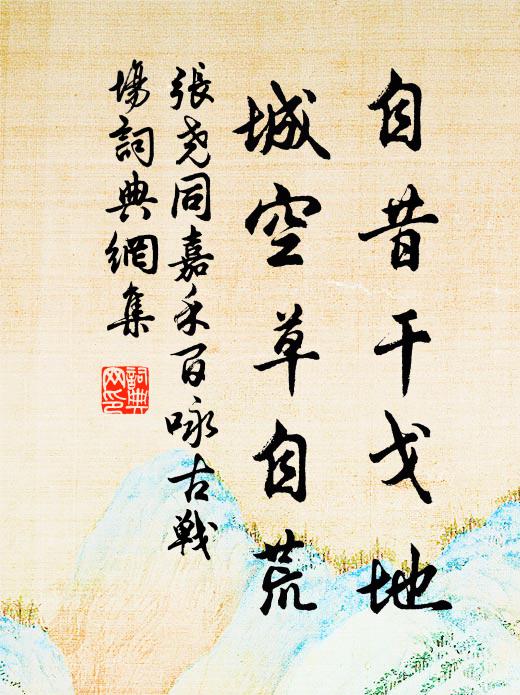 自昔干戈地
城空草自荒
張尭同嘉禾百咏古戦
場詞典網集
詞典
网印